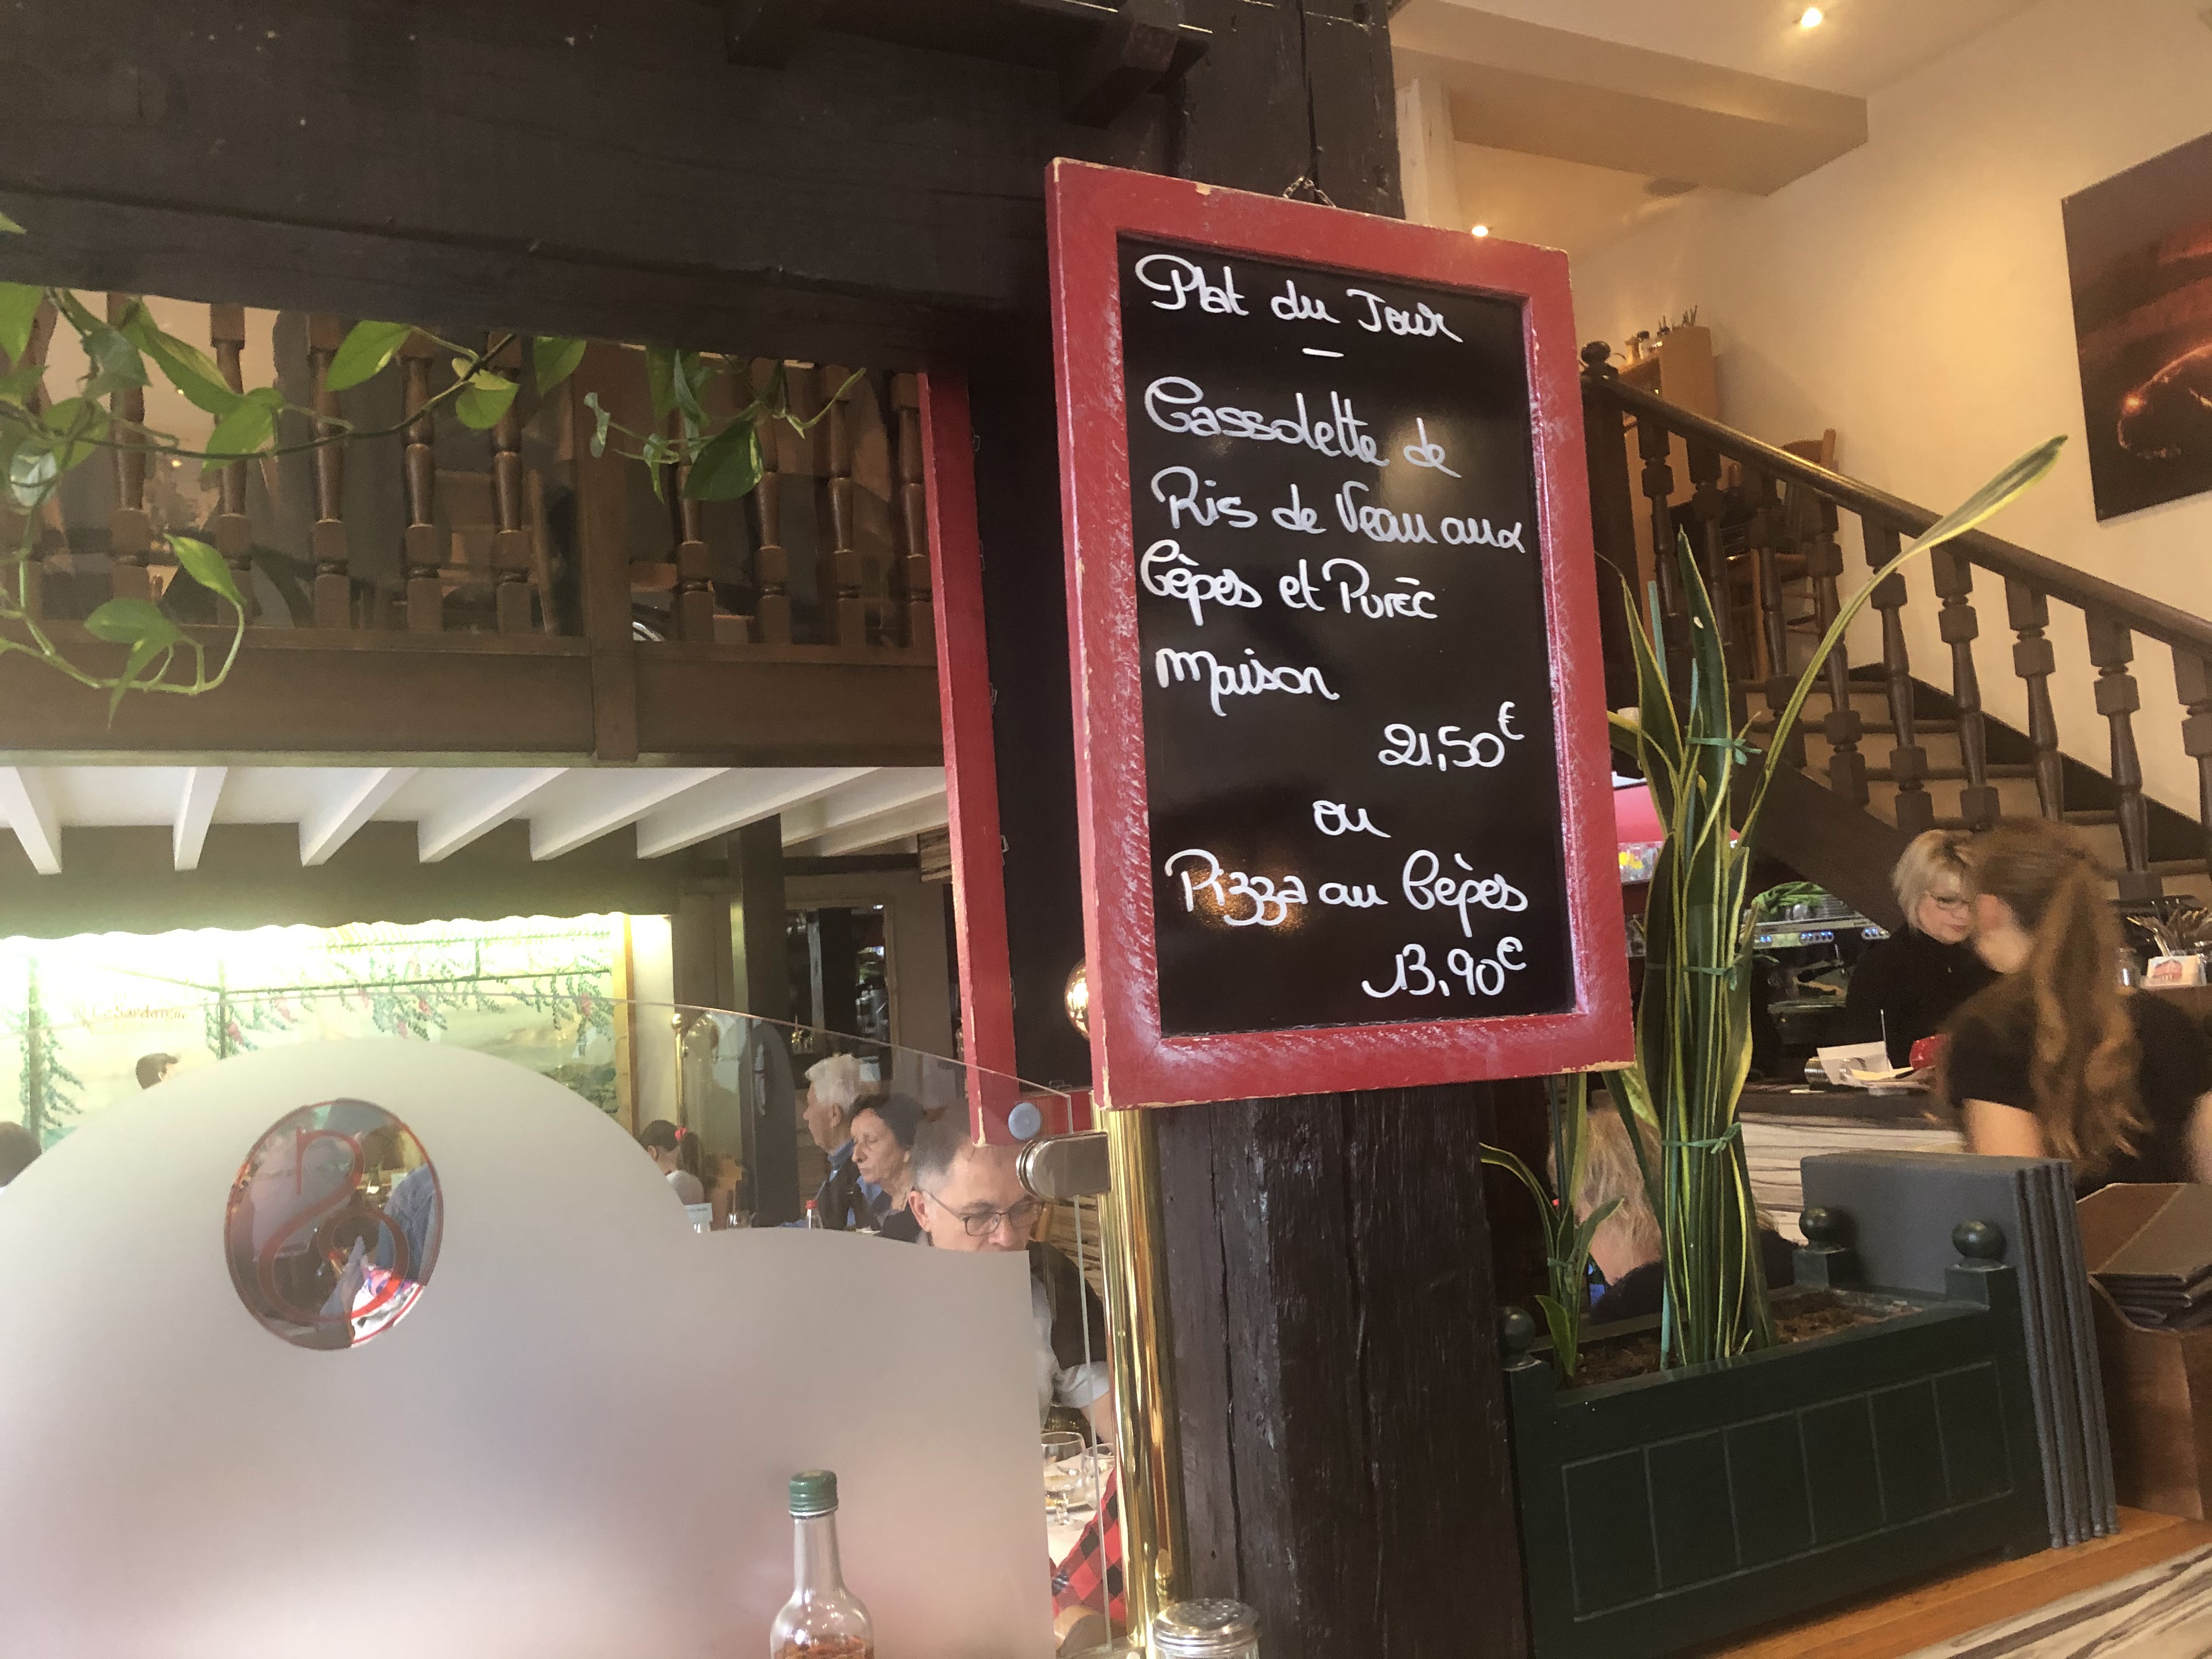 Plat du Jour
—
Cassolette de
Ris de Veau aux
Cèpes et Purée
Maison
21,50€
ou
Pizza au Cèpes
13,90€